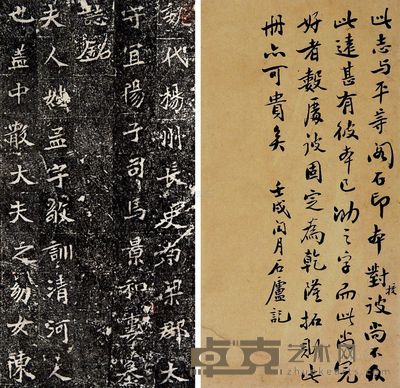 此志与平等阁石印本對校彼尚不及
此遠甚有彼本已泐之字而此尚完
好者數處彼固定為乾隆拓則此
冊亦可貴矣 壬戌閏月石廬記
魏代楊州長史南梁郡太
守宜陽子司馬景和妻墓
誌銘
夫人姓孟字敬訓清河人
也蓋中散大夫之幼女陳
卓克艺术网